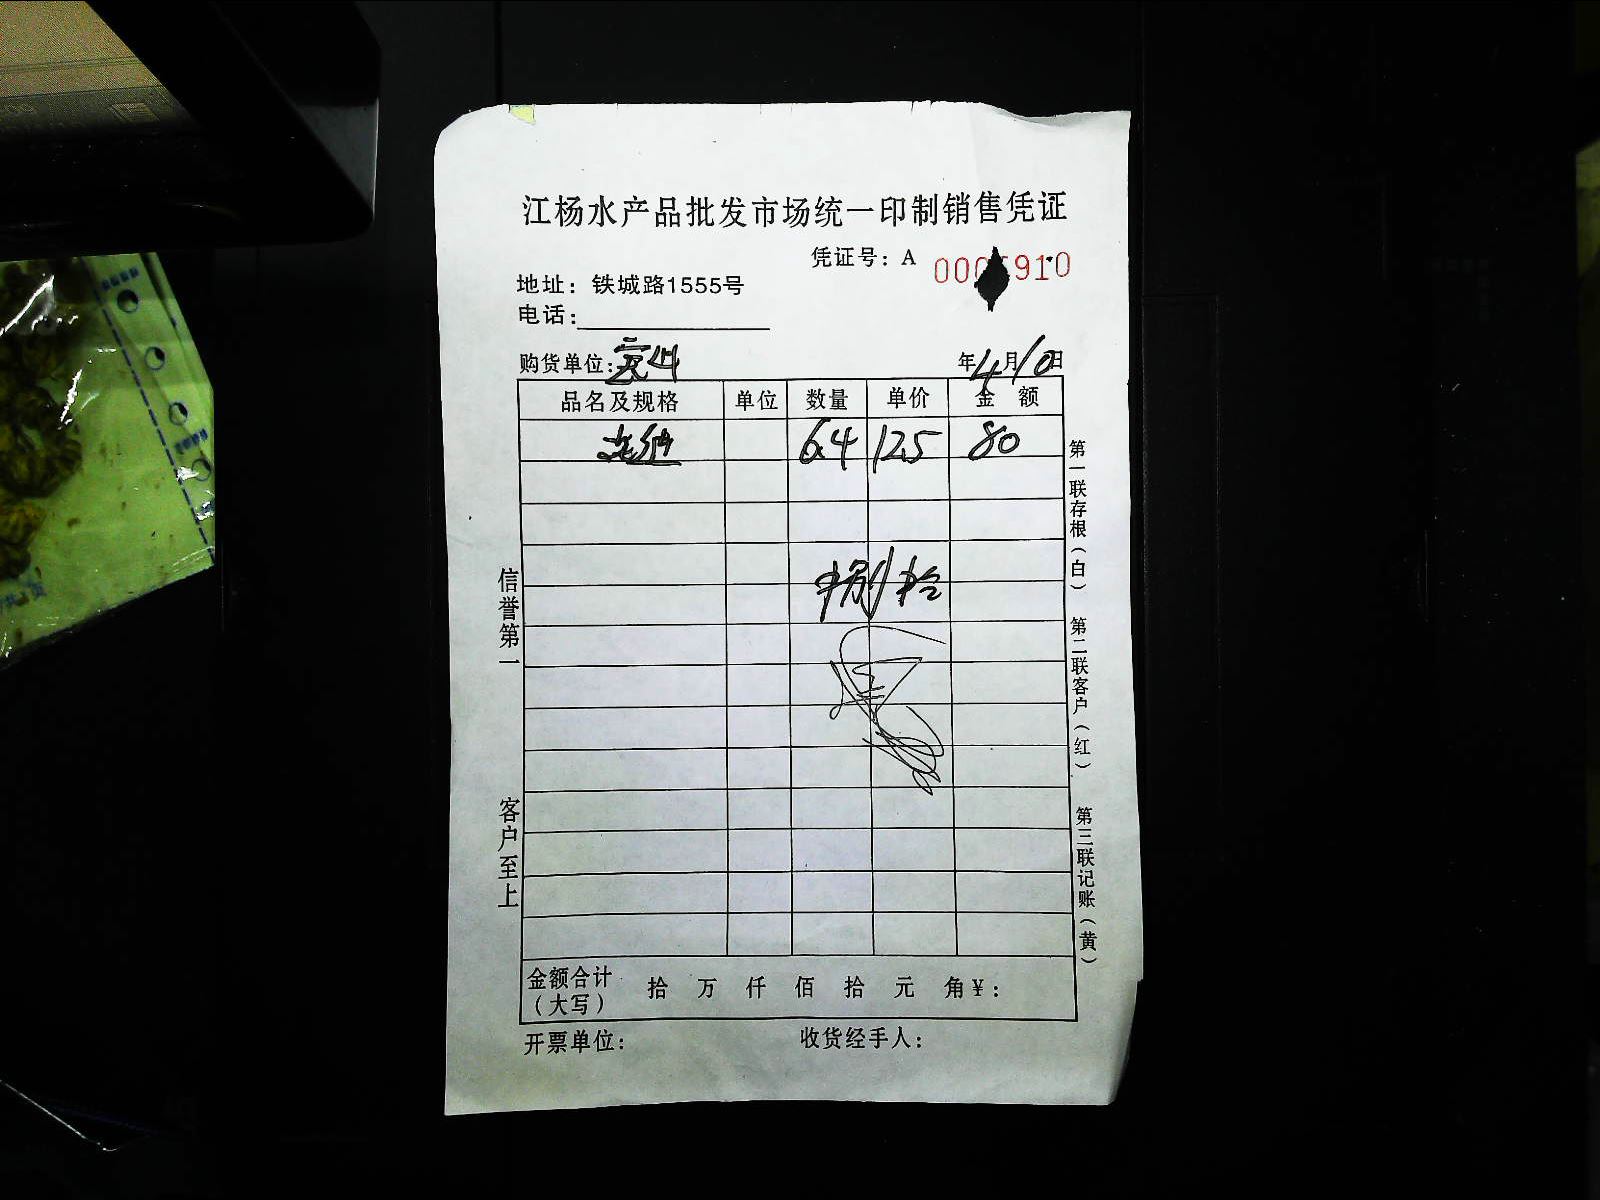 江杨水产品批发市场统一印制销售凭证
凭证号：A 000 910
地址：铁城路1555号
电话：
购货单位：
年4月10日
品名及规格 单位 数量 单价 金 额
6.4 12.5 80
捌拾
金额合计（大写） 拾 万 仟 佰 拾 元 角 ¥：
开票单位： 收货经手人：
信誉第一 客户至上
第一联存根（白） 第二联客户（红） 第三联记账（黄）